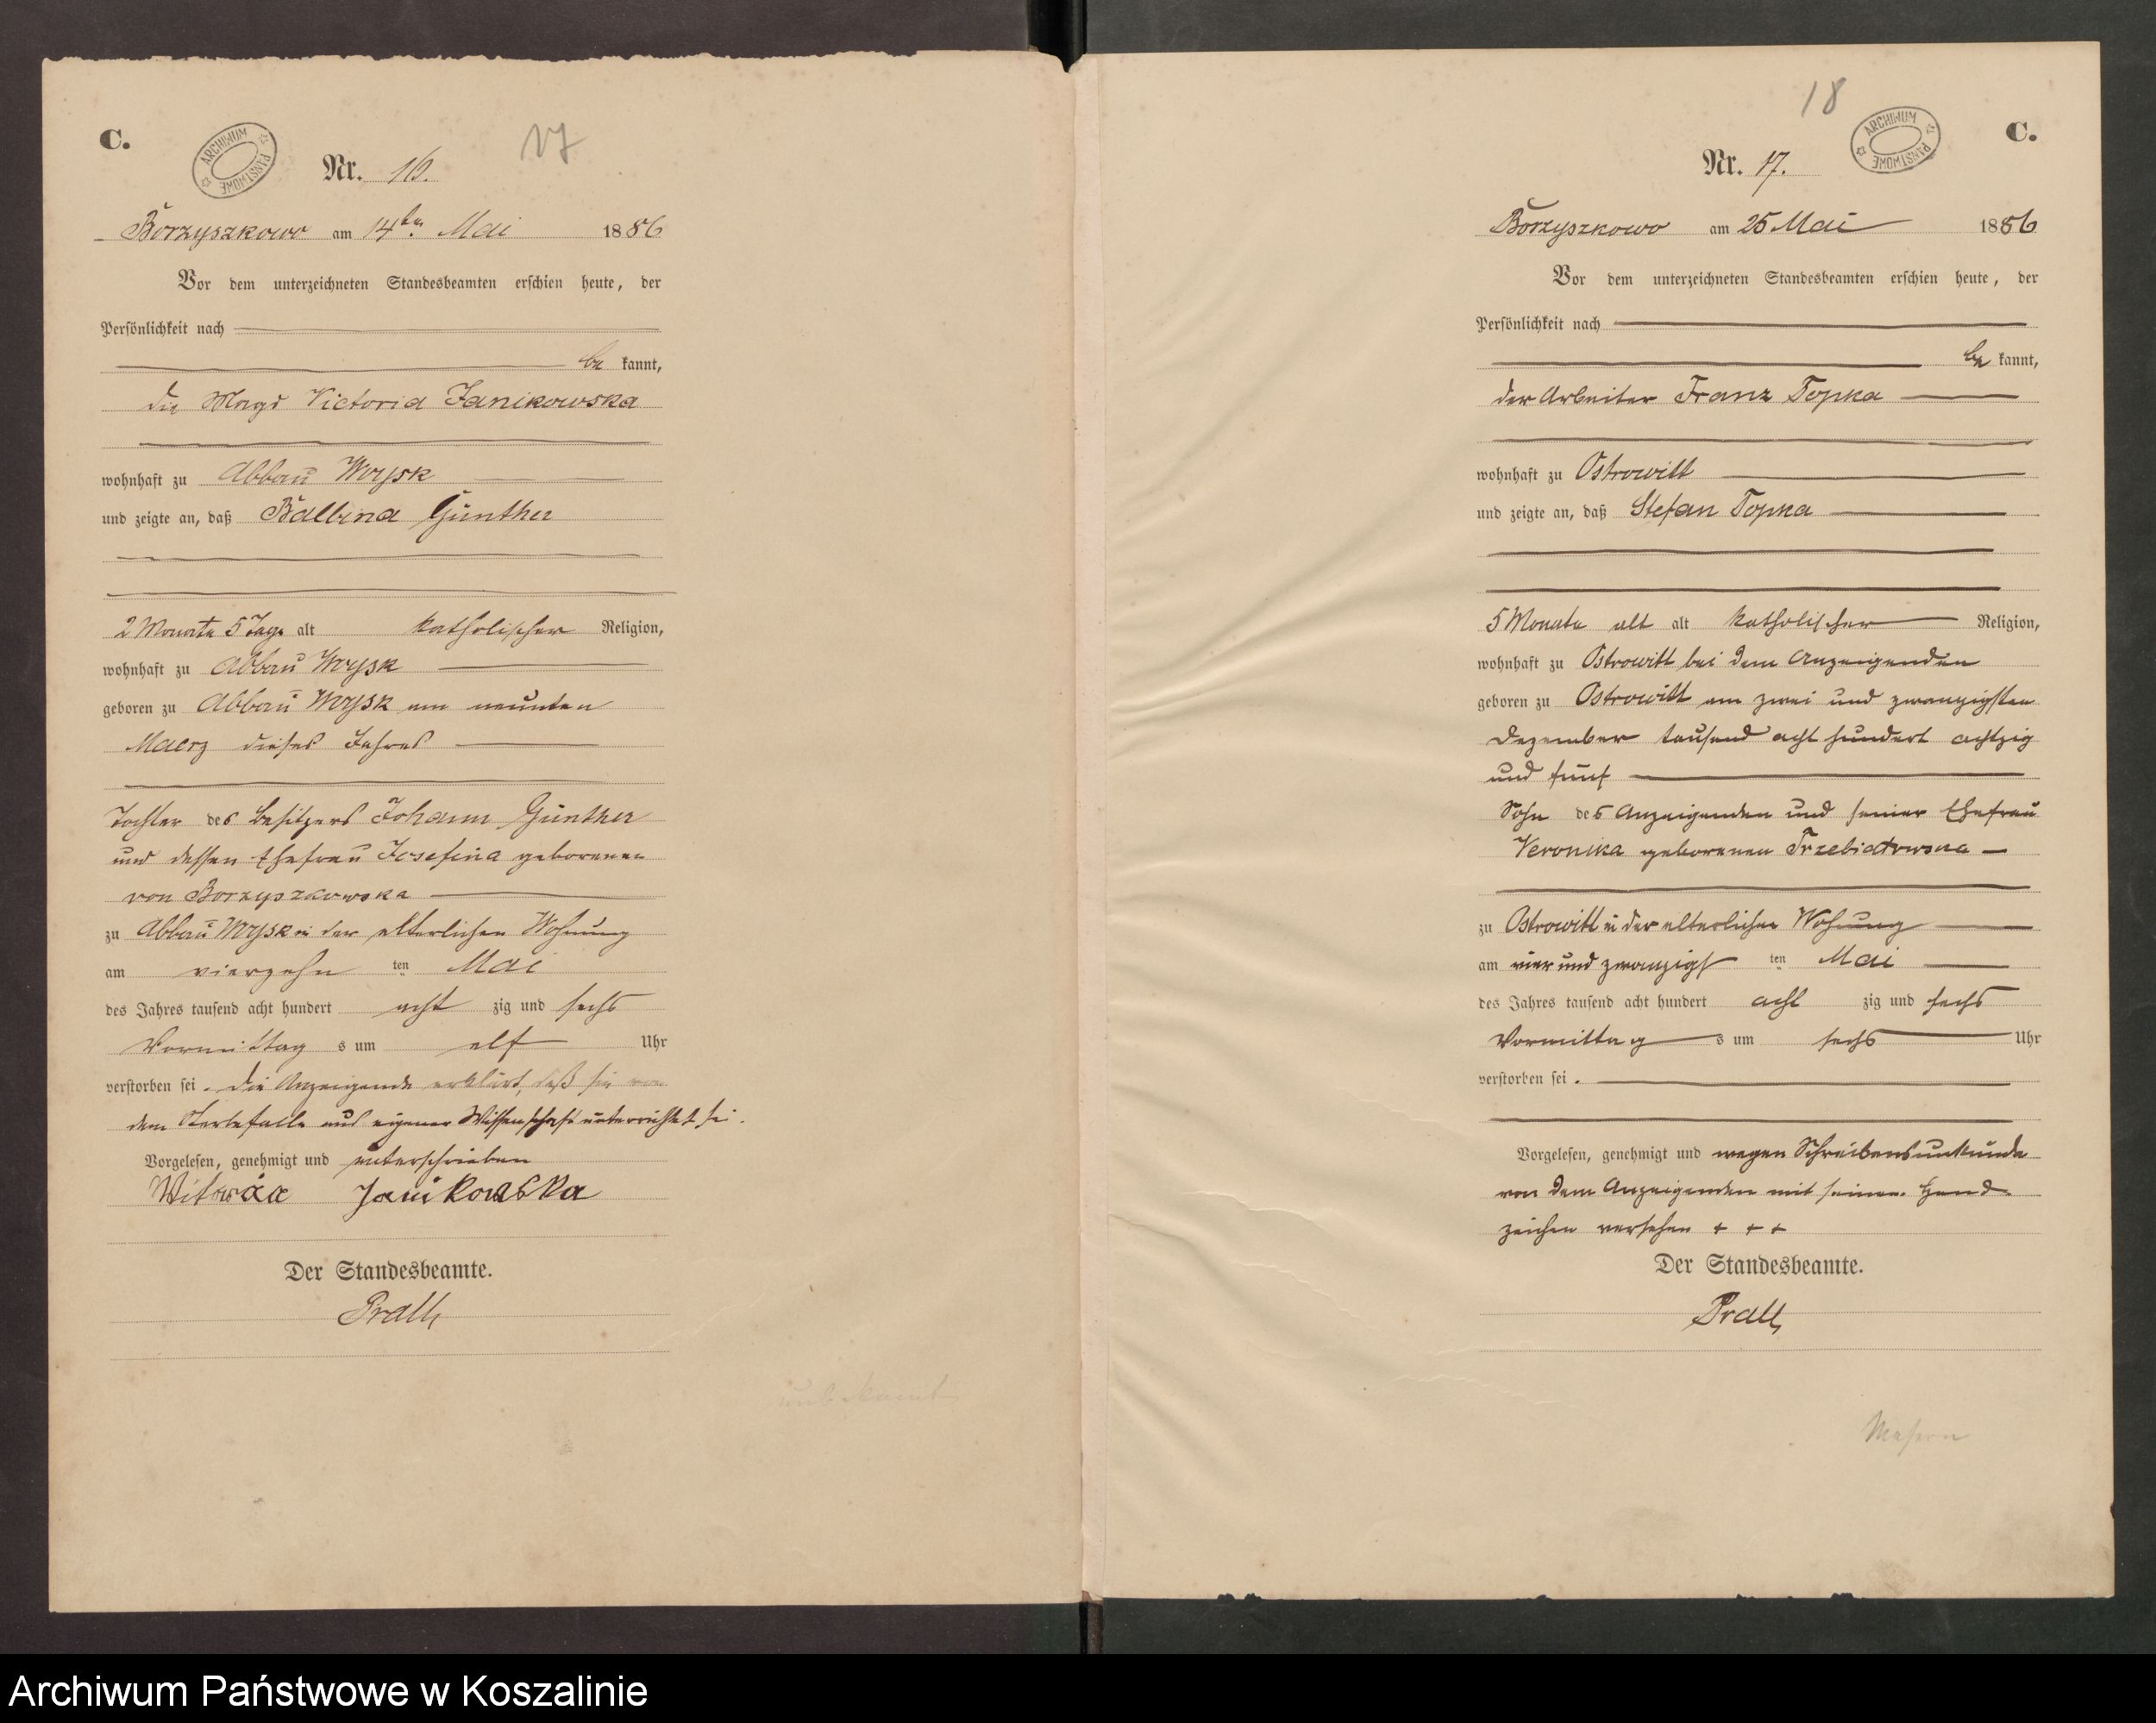 C.
ARCHIWUM PAŃSTWOWE
17
Nr. 16.
Borzyszkowo am 14ten Mai 1886
Vor dem unterzeichneten Standesbeamten erschien heute, der
Persönlichkeit nach
be kannt,
die Magd Victoria Janikowska
wohnhaft zu Abbau Woysk
und zeigte an, daß Balbina Günther
2 Monate 5 Tage alt katholischer Religion,
wohnhaft zu Abbau Woysk
geboren zu Abbau Woysk am neunten
Maerz dieses Jahres
Tochter des Besitzers Johann Günther
und dessen Ehefrau Josefina geborenen
von Borzyszkowska
zu Abbau Woysk in der elterlichen Wohnung
am vierzehn ten Mai
des Jahres tausend acht hundert acht zig und sechs
Vormittag s um elf Uhr
verstorben sei. Die Anzeigende erklärt, daß sie von
dem Sterbefalle aus eigener Wissenschaft unterrichtet sei.
Vorgelesen, genehmigt und unterschrieben
Janikowska
Der Standesbeamte.
Prall
unbekannt
18
ARCHIWUM PAŃSTWOWE
C.
Nr. 17.
Borzyszkowo am 25 Mai 1886
Vor dem unterzeichneten Standesbeamten erschien heute, der
Persönlichkeit nach
be kannt,
der Arbeiter Franz Topka
wohnhaft zu Ostrowitt
und zeigte an, daß Stefan Topka
5 Monate alt alt katholischer Religion,
wohnhaft zu Ostrowitt bei dem Anzeigenden
geboren zu Ostrowitt am zwei und zwanzigsten
Dezember tausend acht hundert achtzig
und fünf
Sohn des Anzeigenden und seiner Ehefrau
Veronika geborenen Trzebiatowska
zu Ostrowitt in der elterlichen Wohnung
am vier und zwanzigs ten Mai
des Jahres tausend acht hundert acht zig und sechs
Vormittag s um sechs Uhr
verstorben sei.
Vorgelesen, genehmigt und wegen Schreibensunkunde
von dem Anzeigenden mit seinen Hand-
zeichen versehen + + +
Der Standesbeamte.
Prall
Masern
Archiwum Państwowe w Koszalinie